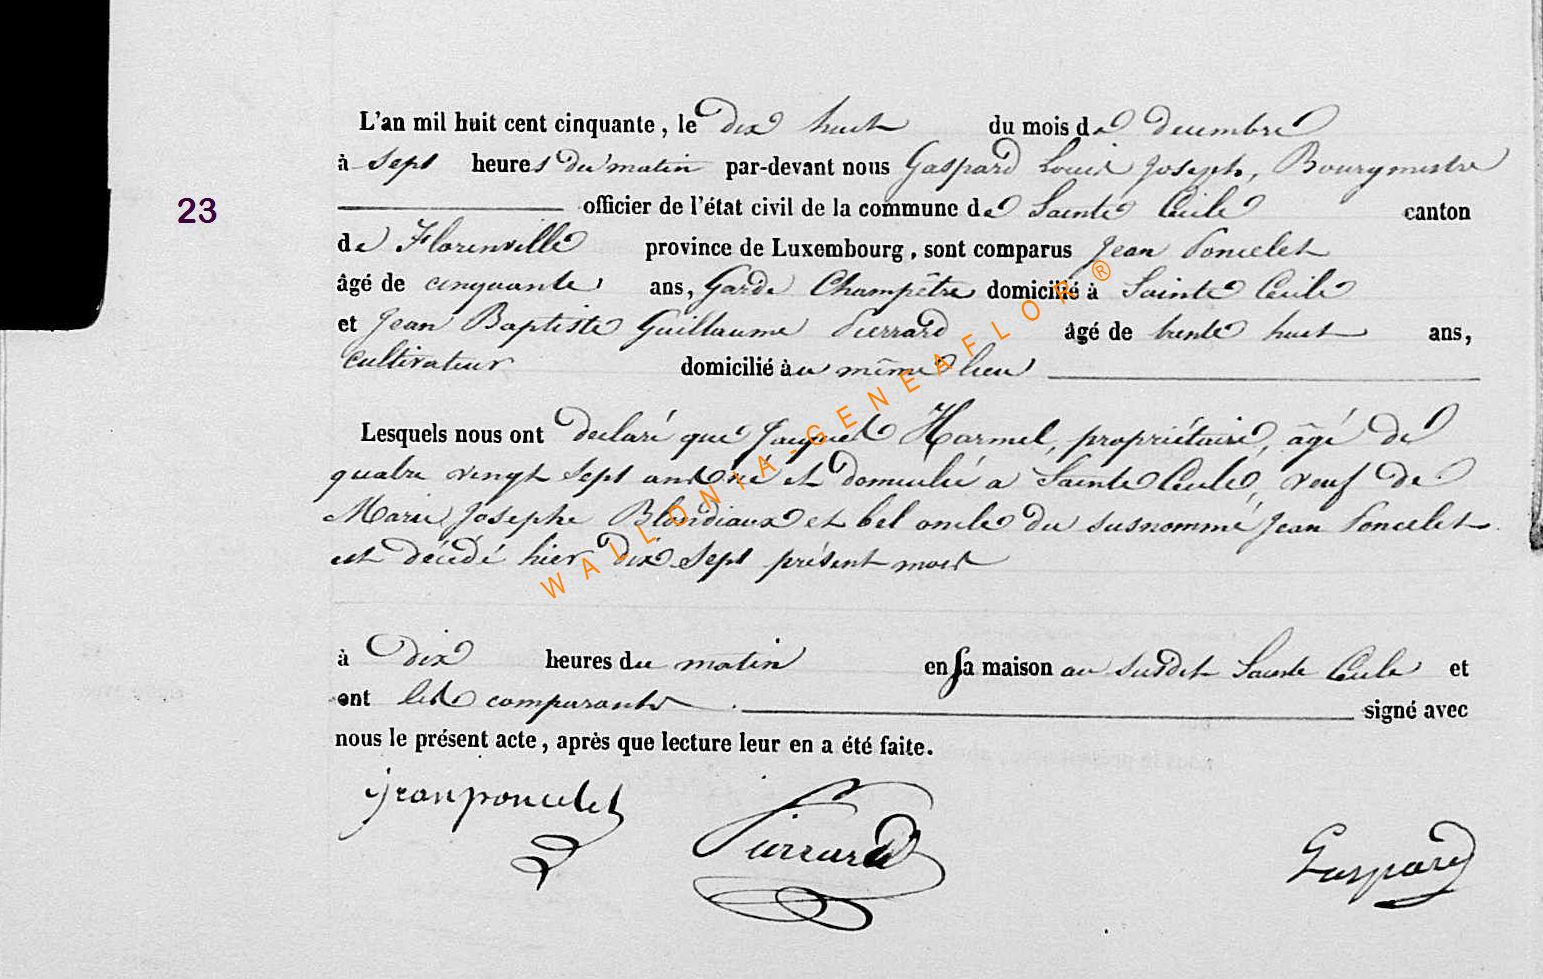 L'an mil huit cent cinquante, le dix huit du mois de decembre
à sept heures du matin par-devant nous Gaspard Louis Joseph, Bourgmestre
23
officier de l'état civil de la commune de Sainte Cécile canton
de Florenville province de Luxembourg, sont comparus Jean Poncelet
âgé de cinquante ans, Garde Champêtre domicilié à Sainte Cécile
et Jean Baptiste Guillaume Pierrard âgé de trente huit ans,
cultivateur domicilié au même lieu
Lesquels nous ont declaré que Jacques Harmel, propriétaire, âgé de
quatre vingt sept ans né et domicilié a Sainte Cécile, veuf de
Marie Josephe Blondiaux et bel oncle du susnommé Jean Poncelet
est décédé hier dix sept présent mois
à dix heures du matin en sa maison au susdit Sainte Cécile et
ont les comparants signé avec
nous le présent acte, après que lecture leur en a été faite.
jean poncelet Pierrard Gaspard
WALLONIA-GENEAFLOR®